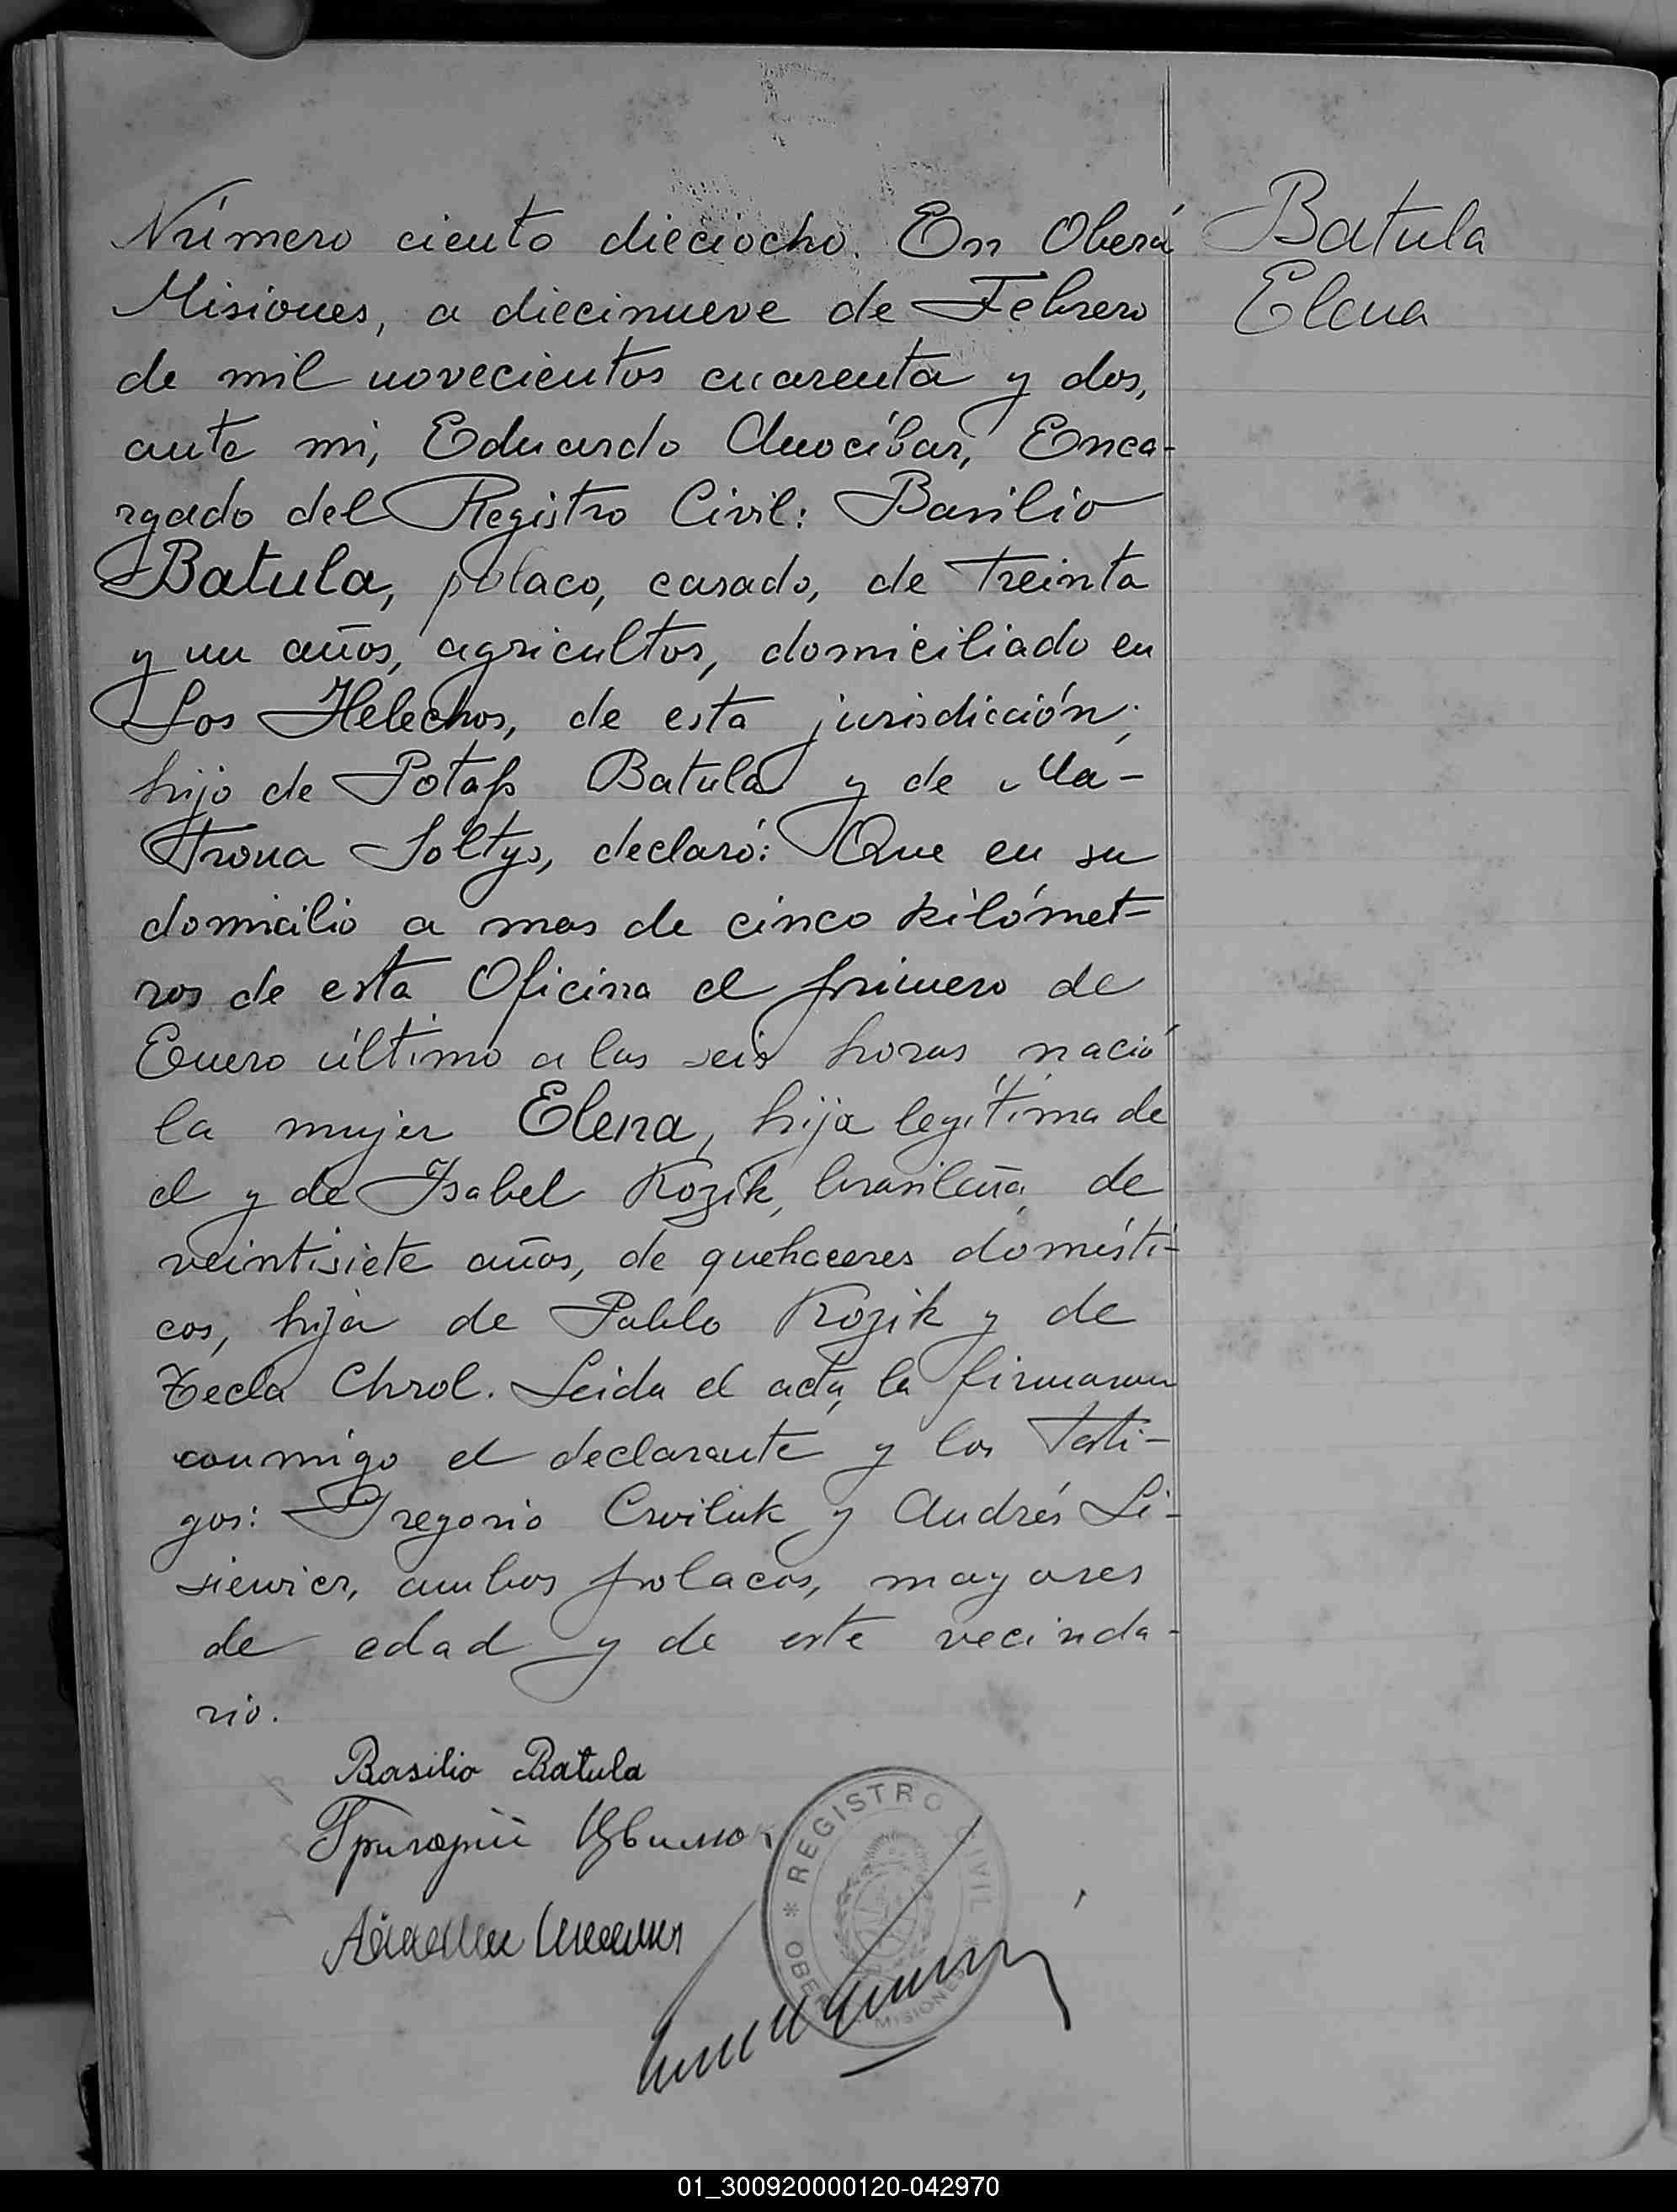 Número ciento dieciocho. En Oberá
Misiones, a diecinueve de Febrero
de mil novecientos cuarenta y dos,
ante mi, Eduardo Anocíbar, Enca-
rgado del Registro Civil: Basilio
Batula, polaco, casado, de treinta
y un años, agricultor, domiciliado en
Los Helechos, de esta jurisdicción;
hijo de Potap Batula y de Ma-
trona Soltys, declaró: Que en su
domicilio a mas de cinco kilómet-
ros de esta Oficina el primero de
Enero último a las seis horas nació
la mujer Elena, hija legítima de
el y de Isabel Kozik, brasileña, de
veintisiete años, de quehaceres domésti-
cos, hija de Pablo Kozik y de
Tecla Chrol. Leida el acta, la firmaron
conmigo el declarante y los testi-
gos: Gregorio Cwiluk y Andrés Li-
siewicz, ambos polacos, mayores
de edad y de este vecinda-
rio.
Batula
Elena
Basilio Batula
Григорий
REGISTRO CIVIL
OBERÁ MISIONES
01_300920000120-042970